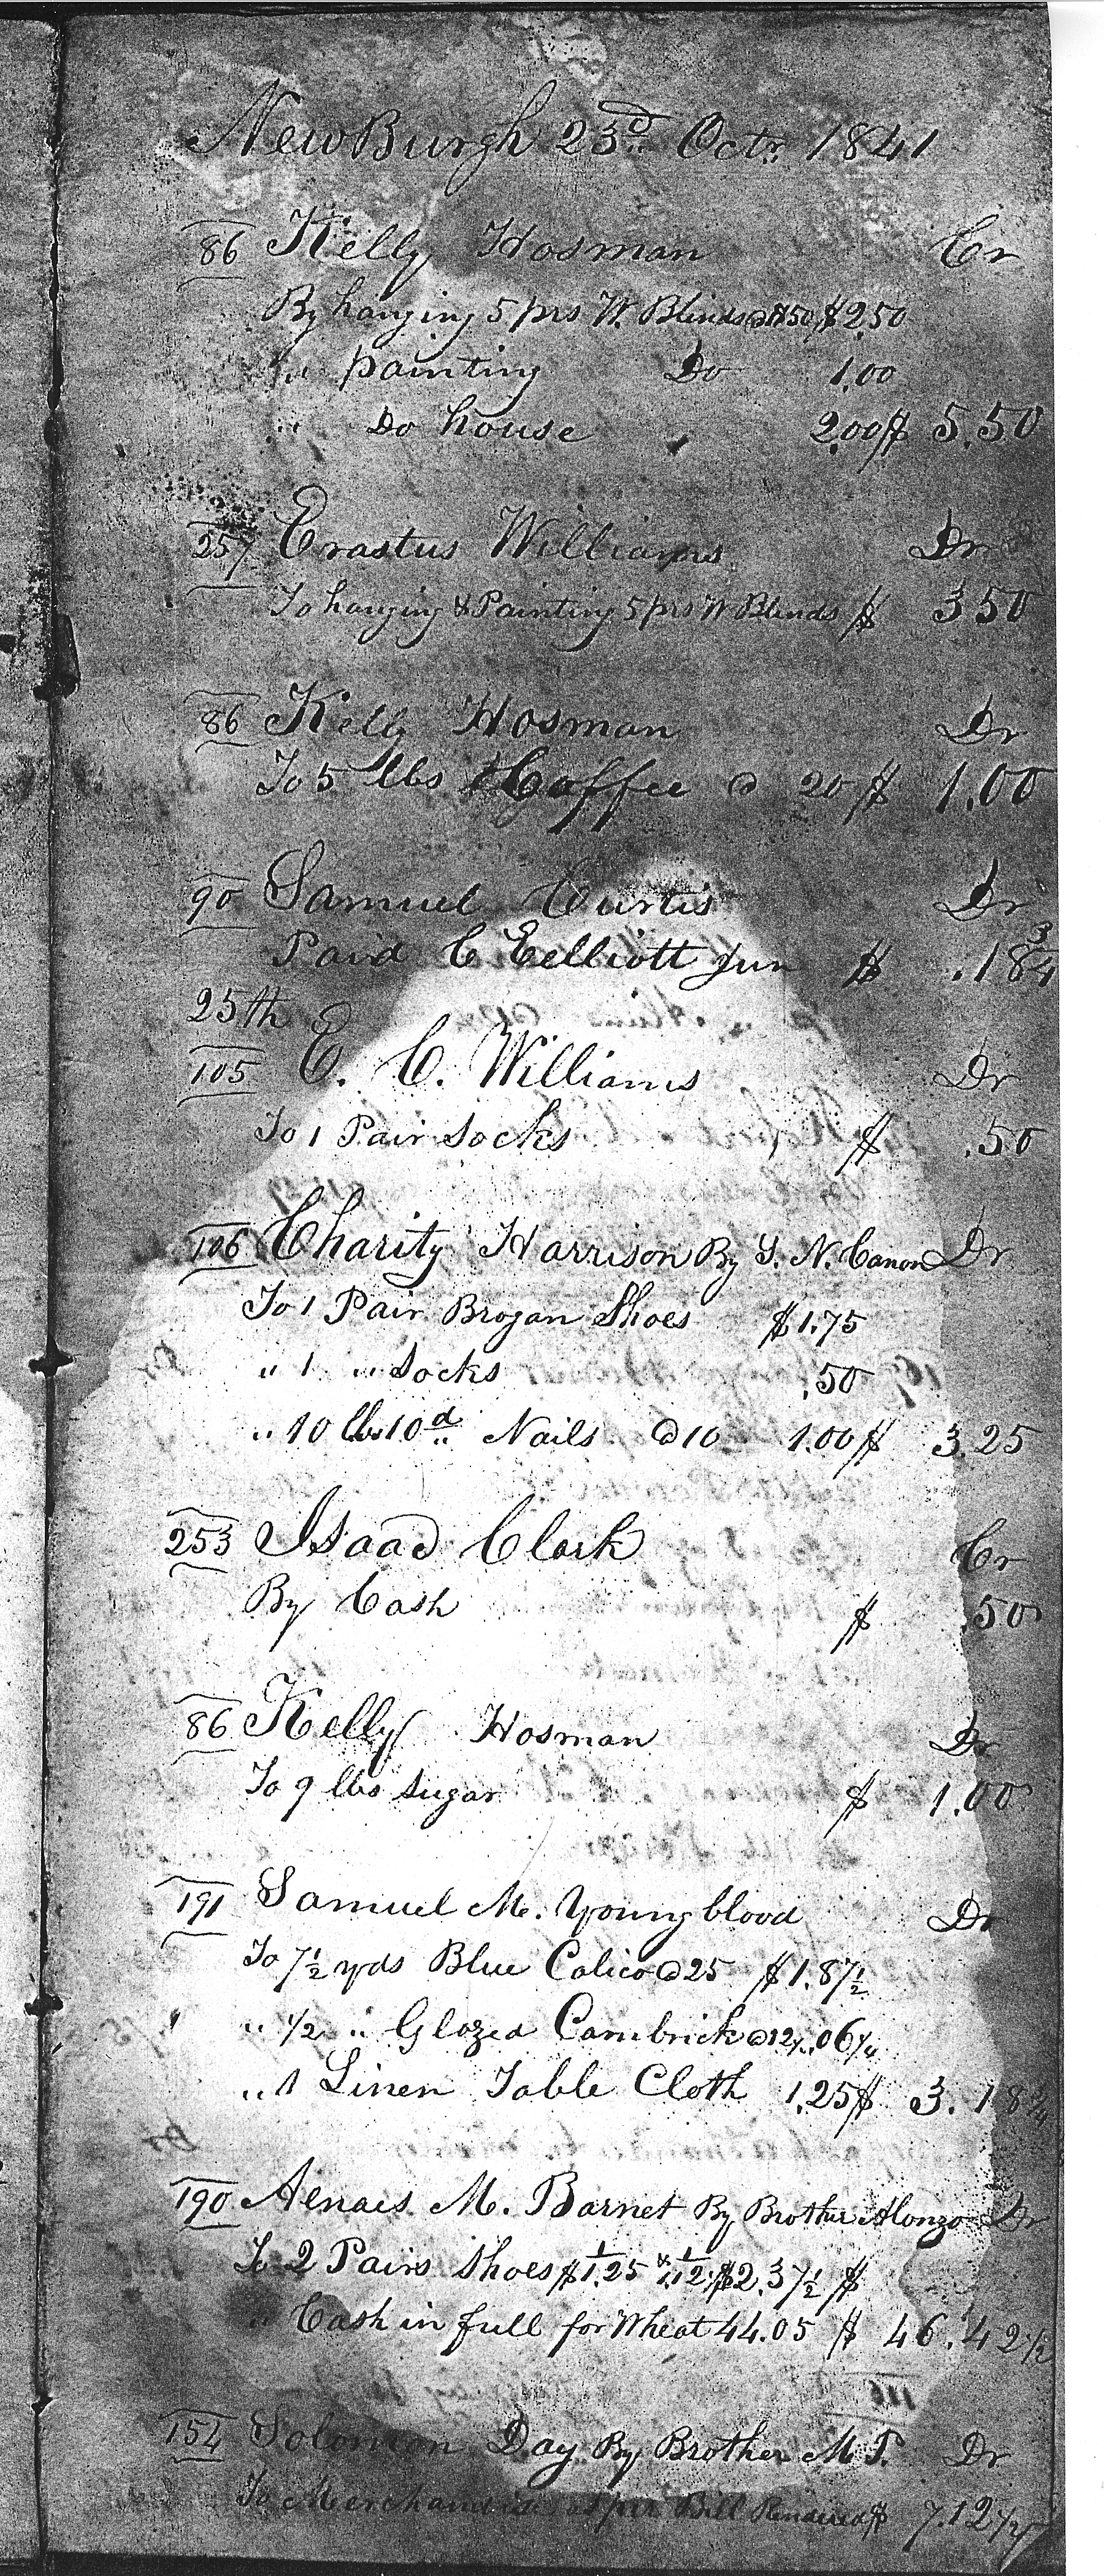 NewBurgh 23d Octr. 1841
86 Kelly Hosman Cr
By hanging 5 prs W. Blinds @ $.50 $2.50
" painting Do 1.00
" Do house 2.00 $ 5.50
257 Erastus Williams Dr
To hanging & Painting 5 prs W Blinds $ 3 50
86 Kelly Hosman Dr
To 5 lbs Coffee @ 20 $ 1.00
90 Samuel Curtis Dr
Paid C Eelliott Jun $ .18 3/4
25th
105 E. C. Williams Dr
To 1 Pair Socks $ .50
106 Charity Harrison By Y. N. Canon Dr
To 1 Pair Brogan Shoes $1.75
" 1 " Socks .50
" 10 lbs 10d Nails @ 10 1.00 $ 3.25
253 Isaac Clark Cr
By Cash $ .50
86 Kelly Hosman Dr
To 9 lbs Sugar $ 1.00
191 Samuel M. Youngblood Dr
To 7 1/2 yds Blue Calico @ 25 $1.87 1/2
" 1/2 " Glazed Cambrick @ 12 1/2 .06 1/4
" 1 Linen Table Cloth 1.25 $ 3.18 3/4
190 Aenaes M. Barnet By Brother Alonzo Dr
To 2 Pairs Shoes $1.25 & 1.12 1/2 $2.37 1/2 $
" Cash in full for Wheat 44.05 $ 46.42 1/2
154 Solomon Day By Brother M P. Dr
To Merchandise as per Bill Rendered $ 7.12 1/2